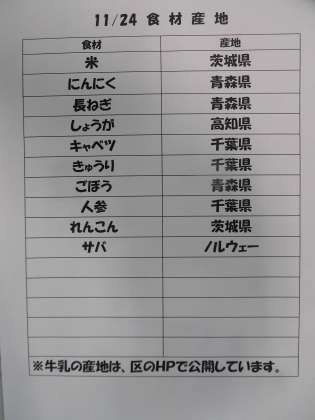 11/24 食材産地
食材 産地
米 茨城県
にんにく 青森県
長ねぎ 青森県
しょうが 高知県
キャベツ 千葉県
きゅうり 千葉県
ごぼう 青森県
人参 千葉県
れんこん 茨城県
サバ ノルウェー
※牛乳の産地は、区のHPで公開しています。